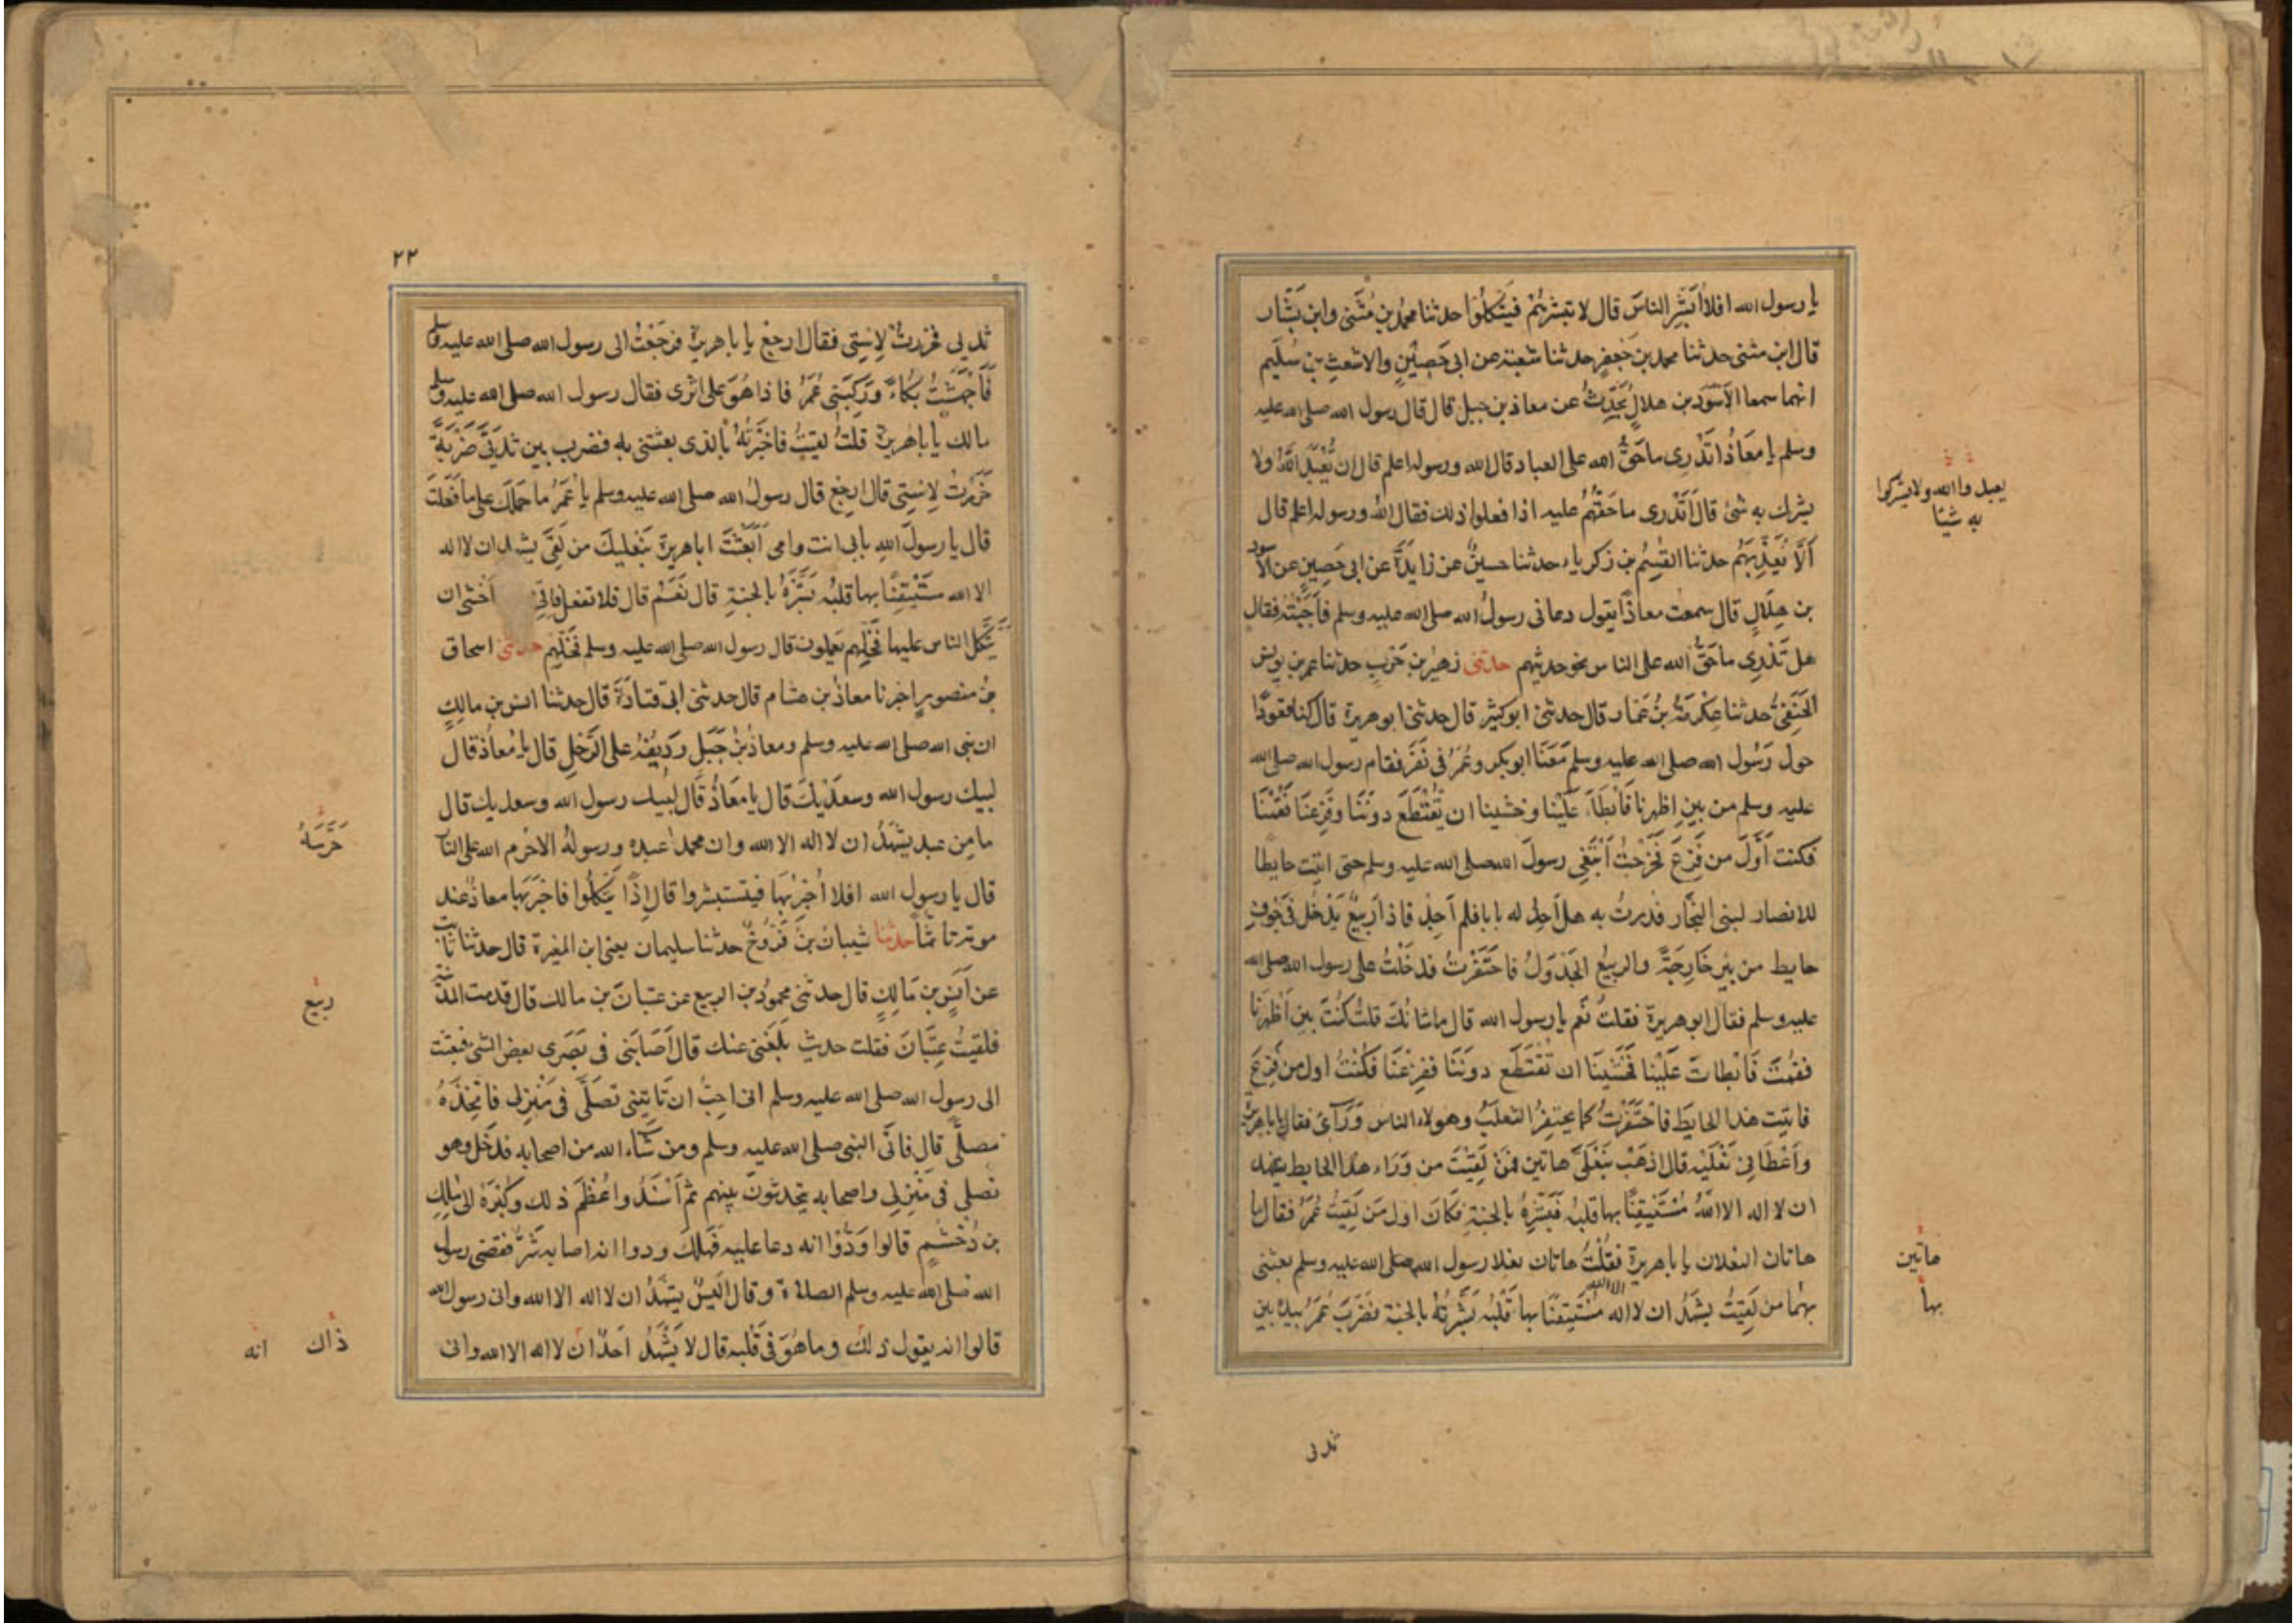 يا رسول الله افلا اُبَشِّر الناسَ قال لا تبشرهُم فيتَّكلُوا حدثنا محمدُ بن مُثَنى وابن بَشَّار
قال ابن مثنى حدثنا محمد بن جَعفرٍ حدثنا شعبة عن ابى حَصِيْنٍ والاشعثِ بن سُلَيم
انهما سمعا الاَسْوَد بن هلالٍ يُحَدِّثُ عن معاذ بن جبل قال قال رسول الله صلى الله عليه
وسلم يا مُعَاذُ اتَدْرى ماحَقُّ الله على العباد قال الله ورسوله اعلم قال ان يُعْبَدَ اللهُ ولا
يشرك به شئ قال اَتَدْرى ماحَقُّهُم عليه اذا فعلوا ذلك فقال الله ورسوله اعلم قال
اَلاَّ يُعَذِّبَهُم حدثنا القٰسِمُ بن زكرياء حدثنا حسينٌ عن زايدَةَ عن ابى حَصِينٍ عن الاسود
بن هِلَالٍ قال سمعت معاذًا يقول دعانى رسولُ الله صلى الله عليه وسلم فاَجَبْتُه فقال
هل تَدْرِى ماحَقُّ الله على الناس نحو حديثهم حدثنى زهَيْر بن حَرْبٍ حدثنا عمر بن يونس
الحَنَفِىُّ حدثنا عِكْرمَةُ بنُ عَمَّار قال حدثنى ابو كثير قال حدثنى ابو هريرة قال كنا قعودًا
حول رَسُول الله صلى الله عليه وسلم مَعَنَا ابو بكر وعُمَرُ فى نَفَرٍ فقام رسول الله صلى الله
عليه وسلم من بين اظهرنا فَابْطَاَ عَلَيْنا وخشينا ان يُقْتَطَعَ دونَنا وفَزِعنَا فقُمْنَا
فكنت اَوَّلَ من فَزِعَ فَخَرَجتُ اَبْتَغِى رسولَ الله صلى الله عليه وسلم حتى اتيت حايطا
للانصار لبنى النجَّار فدرتُ به هل اَجِد له بابا فلم اَجِدْ فاذا رَبيعٌ يَدْخُل فى جَوفِ
حايط من بيرٍ خَارِجَةَ والربيعُ الجَدْوَلُ فاحتَفَزتُ فدخَلْتُ على رسول الله صلى الله
عليه وسلم فقال ابو هريرة فقلتُ نَعَم يا رسول الله قال ماشانُكَ قلتُ كُنتَ بين اَظهرنَا
فقُمْتَ فَابْطاتَ عَلَيْنا فخَشِيْنَا ان تُقْتَطَعَ دونَنَا ففزِعْنَا فكُنْتُ اول من فزعَ
فاتيت هذا الحايَطَ فاحْتَفَزْتُ كما يحتفزُ الثعلَبُ وهولاء الناس وَرَآئى فقال يا باهريرة
وَاَعْطَانِى نَعْلَيْه قال اذهَبْ بنَعْلَىَّ هاتين فمَنْ لَقِيْتَ من وَرَاء هذا الحايط يشهد
ان لا اله الا اللهُ مُسْتَيْقِنًا بها قلبُه فَبَشِّرهُ بالجنةِ فكَانَ اول مَن لَقِيتُ عُمَرُ فقال ما
هاتان النعلان يا باهريرة فقُلْتُ هاتان نعلا رسول الله صلى الله عليه وسلم بعثنى
بهما من لَقِيتُ يشهَدُ ان لا اله الا الله مُسْتَيقِنًا بها قَلْبُه بَشَّرتُهُ بالجنة فضَرَبَ عُمَرُ بيده بين
يعبدوا الله ولا يشركوا
به شيًا
هاتين
بها
ثدى
٢٢
ثديى فخررتُ لِاِستِى فقال ارجِعْ يا باهريرة فرجَعْتُ الى رسول الله صلى الله عليه وسلم
فَاَجْهَشْتُ بُكاءً ورَكِبَنِى عُمَرُ فاذا هُوَ على اثرى فقال رسول الله صلى الله عليه وسلم
مالك يا باهريرة قلتُ لقيتُ فاخبَرْتُهُ بالذى بعثتنى به فضرب بين ثَديَىَّ ضَرْبَةً
خَرَرْتُ لِاِسْتِى قال ارجِع قال رسولُ الله صلى الله عليه وسلم يا عُمَرُ ما حملَكَ على ما فَعَلْتَ
قال يا رسولَ اللهِ بابى انت وامى اَبَعَثْتَ ابا هريرةَ بنَعْليكَ من لَقِىَ يشهد ان لا اله
الا الله مسْتَيْقِنًا بها قلبُه بَشَّرَهُ بالجنةِ قال نَعَمْ قال فلا تفعل فانى اَخشى ان
يَتَّكلَ الناس عليها فَخَلِّهم يَعملون قال رسول الله صلى الله عليه وسلم فَخَلِّهِم حدثنى اسحاق
بنُ منصورٍ اخبرنا معاذُ بن هشام قال حدثنى ابى قتادَةَ قال حدثنا انس بن مالكٍ
ان نبى الله صلى الله عليه وسلم ومعاذُ بْنُ جَبَلٍ رَدِيْفُهُ على الرَّحْلِ قال يا مُعاذُ قال
لبيك رسول الله وسعدَيْكَ قال يا مُعَاذُ قَال لبيك رسول الله وسعديك قال
ما مِن عبد يَشهَدُ ان لا اله الا الله وان محمدا عبده ورسولهُ الا حَرم الله على النار
قال يا رسول الله افلا اُخْبِرُ بها فيستبشروا قال اِذًا يَتَّكِلُوا فاخبَرَبها معاذٌ عند
موته تاثُّماً حدثنا شَيبانُ بنُ فَرُّوخٌ حدثنا سليمان يعنى ابن المغيرة قال حدثنا ثابت
عن اَنَسٍ بن مَالِكٍ قال حدثنى محمودُ بن الربيع عن عتبانَ بن مالك قال قدمت المدينة
فلقيتُ عِتْبَانَ فقلت حديث بَلَغَنى عنك قال اَصَابَنى فى بَصَرى بعض الشى فبعثت
الى رسول الله صلى الله عليه وسلم انى احِبُّ ان تَاتِيَنِى تصَلِّى فى مَنْزِلى فاتخِذَهُ
مصلًّى قال فاتَى النبى صلى الله عليه وسلم ومن شَاءَ الله من اصحابه فدخَلَ وهو
تصلى فى مَنزلى واصحابه يتحدثونَ بينهم ثم اَسْنَدُوا عُظْمَ ذلك وكُبْرَهُ الى مَالِكِ
بن دُخْشُمٍ قالوا وَدُّوْا انه دعا عليه فهَلَكَ ودوا انه اصابه شَرٌّ فقضى رسول
الله صلى الله عليه وسلم الصلاة وقال اَليسَ يشهَدُ ان لا اله الا الله وانى رسول الله
قالوا انه يقول ذلك وما هُوَ فى قَلْبه قال لا يَشْهَدُ اَحَدٌ ان لا اله الا الله وانى
حَرَّمَهُ
ربيع
ذاك انه